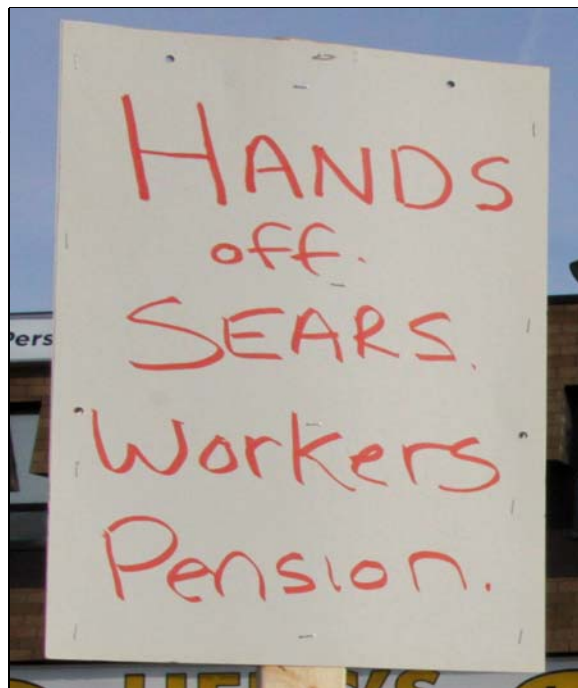 HANDS
off.
SEARS.
Workers
Pension.